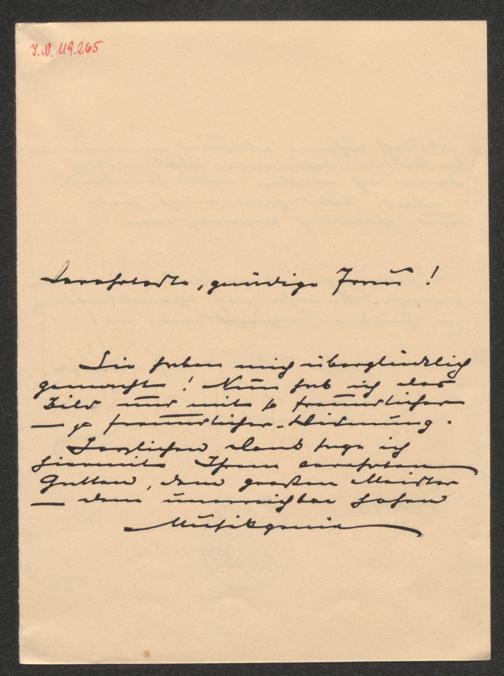 J.N. 119.265
Verehrteste, gnädige Frau!
Sie haben mich überglücklich
gemacht! Nun hab ich das
Bild und mit so freundlicher
— so freundlicher Widmung.
Herzlichen Dank sage ich
hiermit Ihrem verehrten
Gatten, dem großen Meister
— dem unerreichbar hohen
Musikgenie